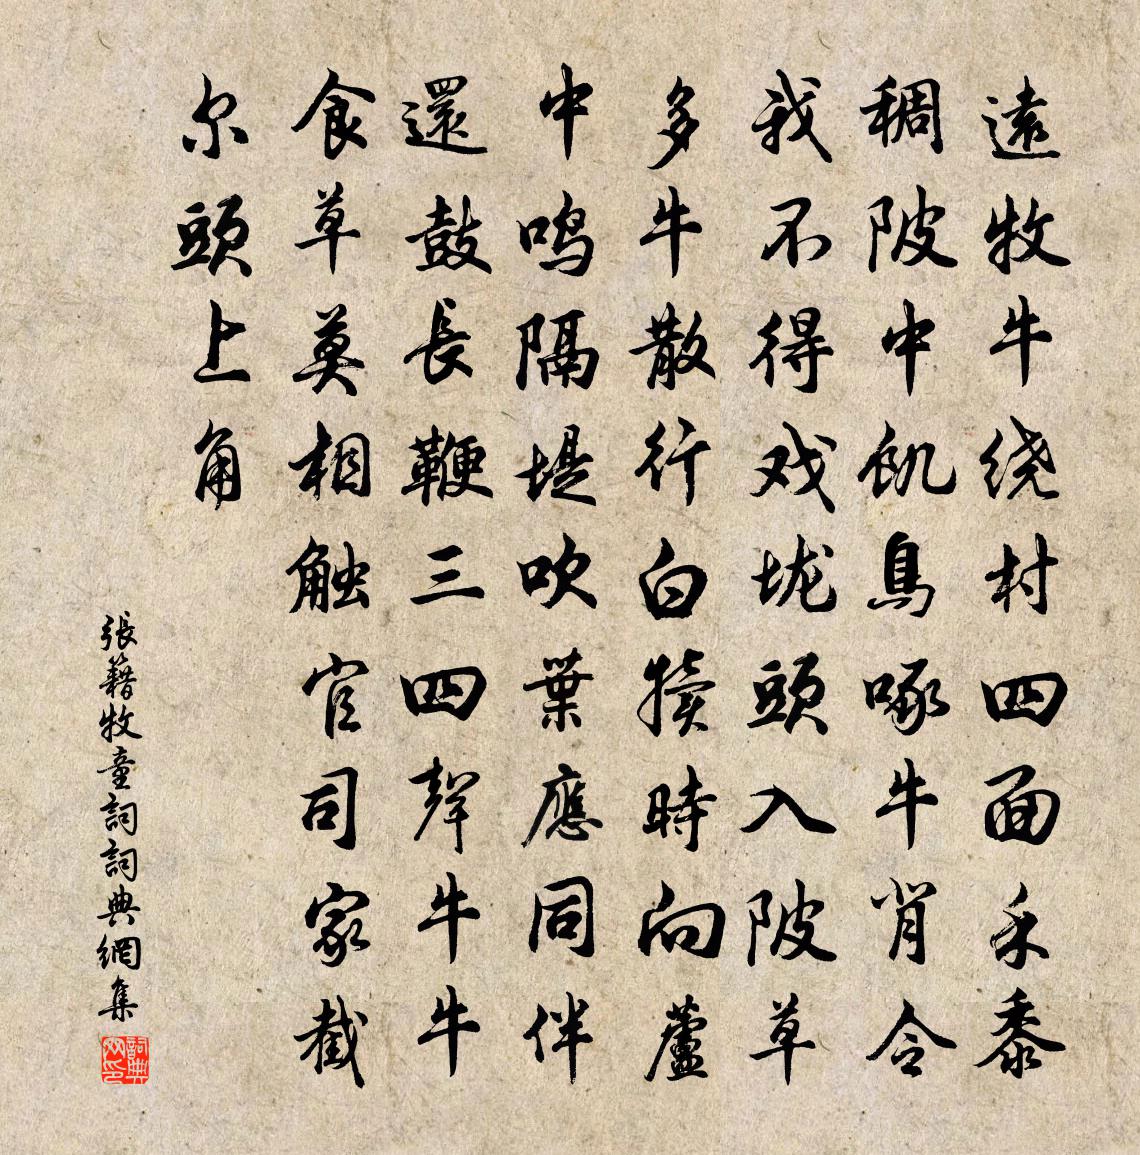 遠牧牛绕村四面禾黍
稠陂中飢鳥啄牛背令
我不得戏垅頭入陂草
多牛散行白犢時向蘆
中鸣隔堤吹葉應同伴
還鼓長鞭三四聲牛牛
食草莫相触官司家截
尔頭上角
張籍牧童詞詞典網集
詞典网印